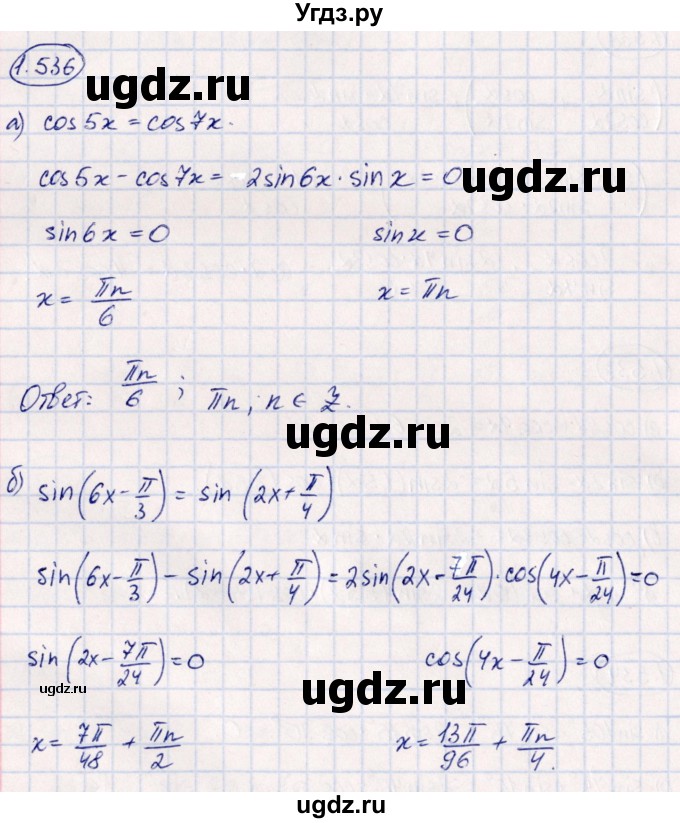 Угдз.ру
1.536
ugdz.ru
а) cos5x = cos7x.
cos5x - cos7x = -2sin6x · sinx = 0
ugdz.ru
sin6x = 0 sinx = 0
x = πn/6 x = πn
Ответ: πn/6 ; πn, n ∈ Z.
ugdz.ru
б) sin(6x - π/3) = sin(2x + π/4)
sin(6x - π/3) - sin(2x + π/4) = 2sin(2x - 7π/24) · cos(4x - π/24) = 0
sin(2x - 7π/24) = 0 cos(4x - π/24) = 0
ugdz.ru
ugdz.ru
x = 7π/48 + πn/2 x = 13π/96 + πn/4.
ugdz.ru